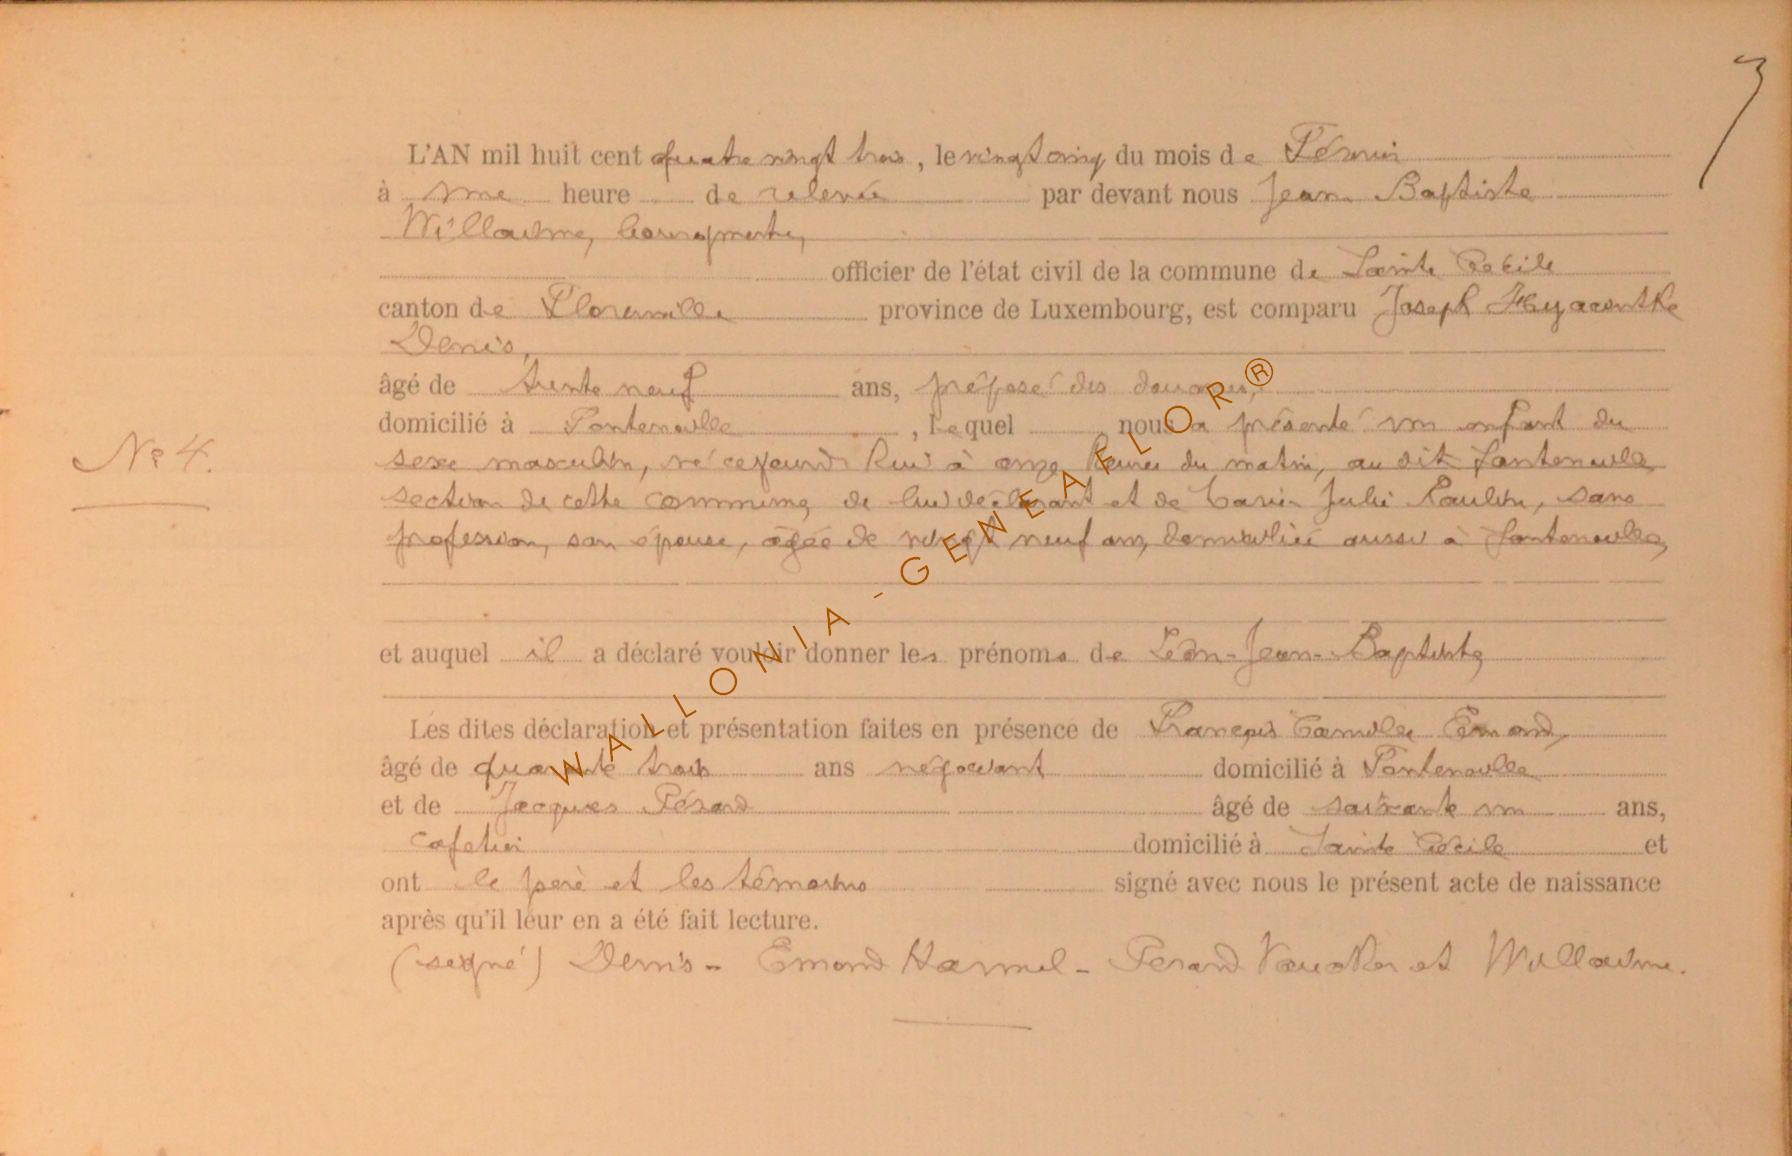 3
L'AN mil huit cent quatre vingt trois, le vingt cinq du mois de Février
à une heure de relevée par devant nous Jean Baptiste
Willaume, Bourgmestre,
officier de l'état civil de la commune de Sainte Cécile
canton de Florenville province de Luxembourg, est comparu Joseph Hyacinthe
Denis,
âgé de trente neuf ans, préposé des douanes,
domicilié à Fontenoille, lequel nous a présenté un enfant du
N° 4. sexe masculin, né cejourd'hui à onze heures du matin, au dit Fontenoille
section de cette commune, de lui déclarant et de Marie Julie Paulin, sans
profession, son épouse, âgée de vingt neuf ans, domiciliée aussi à Fontenoille,
et auquel il a déclaré vouloir donner les prénoms de Léon-Jean-Baptiste,
Les dites déclaration et présentation faites en présence de François Camille Emond,
âgé de quarante trois ans négociant domicilié à Fontenoille
et de Jacques Pérard âgé de soixante un ans,
cafetier domicilié à Sainte Cécile et
ont le père et les témoins signé avec nous le présent acte de naissance
après qu'il leur en a été fait lecture.
(signé) Denis - Emond Harmel - Perard et Willaume.
WALLONIA-GENEAFLOR®